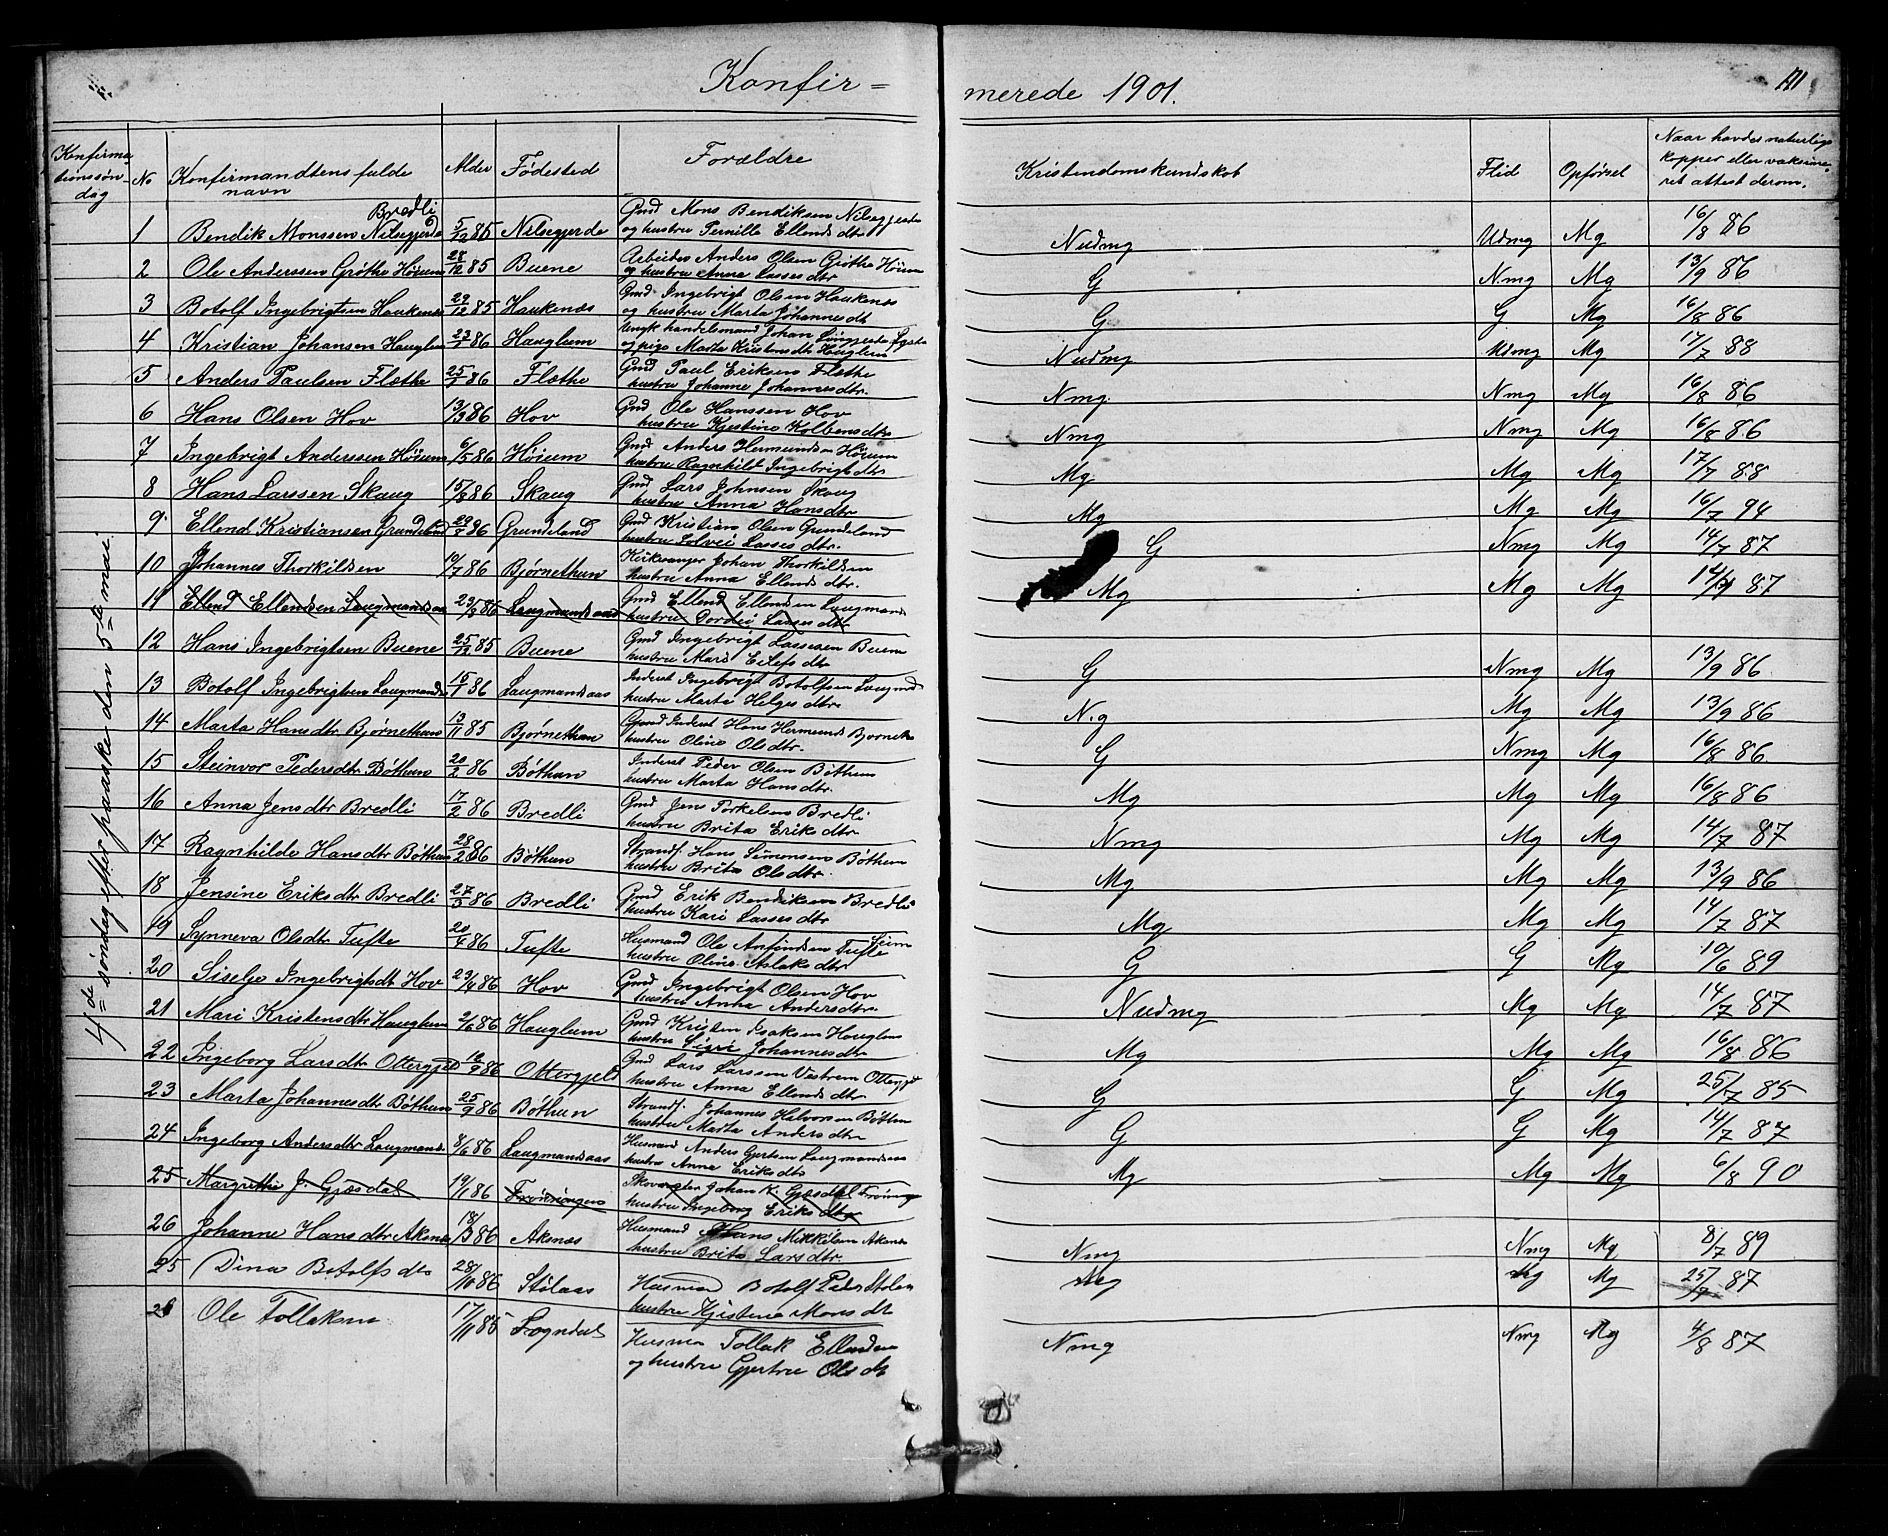 Konfir = merede 1901.
Konfirma
tionssøn-
dag
No
Konfirmandtens fulde
navn
Alder
Fødested
Forældre
Kristendomskundskab
Flid
Opførsel
Naar havdes naturlige
kopper eller vaksine-
ret attest derom.
4de søndag efter paaske den 5te mai.
Bredli
1 Bendik Monssen Nilsegjerde 5/12 85 Nilsegjerde Gmd Mons Bendiksen Nilsegjerde
og hustru Pernille Ellends dtr Nudmg Udmg Mg 16/8 86
2 Ole Anderssen Grøthe Høium 28/12 85 Buene Arbeider Anders Olsen Grøthe Høium
og hustru Anna Lasses dtr G Nmg Mg 13/9 86
3 Botolf Ingebrigtsen Haukenæs 29/12 85 Haukenæs Gmd Ingebrigt Olsen Haukenæs
og hustru Marta Johannes dt G G Mg 16/8 86
4 Kristian Johansen Hauglum 23/1 86 Hauglum Ungk handelsmand Johan
og pige Marta Kristens dt Hauglum Nudmg Udmg Mg 17/7 88
5 Anders Paulsen Flæthe 25/1 86 Flæthe Gmd Paul Eriksen Flæthe
hustru Johanne Johannes dtr. Nmg. Nmg Mg 16/8 86
6 Hans Olsen Hov 13/3 86 Hov Gmd Ole Hanssen Hov
hustru Kjestine Kolbens dtr Nmg Nmg Mg 16/8 86
7 Ingebrigt Anderssen Høium 6/5 86 Høium Gmd Anders Hermundsen Høium
hustru Ragnhild Ingebrigt dtr Mg Mg Mg 17/7 88
8 Hans Larssen Skaug 15/8 86 Skaug Gmd Lars Johnsen Skaug
hustru Anna Hans dtr Mg Mg Mg 16/7 94
9 Ellend Kristiansen Grundeland 86 Grundeland Gmd Kristian Olsen Grundeland
hustru Solvei Lasses dtr. G Nmg Mg 14/7 87
10 Johannes Thorkildsen 86 Bjørnethun Kirkesanger Johan Thorkildsen
hustru Anna Ellends dtr. Mg Mg Mg 14/7 87
11 Ellend Ellendsen Laugmandsaas 23/8 86 Laugmandsaas Gmd Ellend Ellendsen Laugmands
hustru Dordei Lasses dtr
12 Hans Ingebrigtsen Buene 25/12 85 Buene Gmd Ingebrigt Lassesen Buene
hustru Mari Eilefs dtr G Nmg Mg 13/9 86
13 Botolf Ingebrigtsen Laugmands 15/1 86 Laugmandsaas Inderst Ingebrigt Botolfsen Laugmd
hustru Marta Helges dtr. N.g Mg Mg 13/9 86
14 Marta Hans dtr Bjørnethun 13/11 85 Bjørnethun Gmd Inderst Hans Hermunds Bjørneth
hustru Oline Ols dtr. G Nmg Mg 16/8 86
15 Steinvor Peders dtr Bøthun 20/2 86 Bøthun Inderst Peder Olsen Bøthun
hustru Marta Hans dtr. Mg Mg Mg 16/8 86
16 Anna Jens dtr Bredli 17/2 86 Bredli Gmd Jens Torkelsen Bredli
hustru Brita Eriks dtr Nmg Mg Mg 14/7 87
17 Ragnhilde Hans dtr Bøthun 28/2 86 Bøthun Strands. Hans Simonsen Bøthun
hustru Brita Ols dtr. Mg Mg Mg 13/9 86
18 Jensine Eriks dtr Bredli 27/3 86 Bredli Gmd Erik Bendiksen Bredli
hustru Kari Lasses dtr Mg Mg Mg 14/7 87
19 Synneva Ols dtr Tufte 20/6 86 Tufte Husmand Ole Anfindsen Tufte Seim
hustru Oline Aslaks dtr G G Mg 10/6 89
20 Siselje Ingebrigts dt Hov 86 Hov Gmd Ingebrigt Olsen Hov
hustru Anna Anders dtr. Nudmg Mg Mg 14/7 87
21 Mari Kristens dtr Hauglum 2/6 86 Hauglum Gmd Kristen Isaksen Hauglum
hustru Sigri Johannes dtr Mg Mg Mg 16/8 86
22 Ingeborg Lars dtr Ottergjeld 16/9 86 Ottergjeld Gmd Lars Larssen Vestrem Ottergjeld
hustru Anna Ellends dtr G G Mg 25/7 85
23 Marta Johannes dtr Bøthun 25/9 86 Bøthun Strands. Johannes Halvorsen Bøthun
hustru Marta Anders dtr G G Mg 14/7 87
24 Ingeborg Anders dtr Laugmands 8/6 86 Laugmandsaas Husmand Anders Gjertsen Laugmandsaas
hustru Anna Eriks dtr Mg Mg Mg 6/8 90
25 Margrethe J. Gjæsdal 19/1 86 Johan K. Gjæsdal
hustru Ingeborg Eriks dtr
26 Johanne Hans dtr Aksnæs 18/3 86 Aksnæs Husmand Hans Mikkelsen Aksnæs
hustru Brita Lars dtr. Nmg Nmg Mg 8/7 89
25 Dina Botolfs dtr 28/10 86 Stølaas Husman Botolf Peders
hustru Kjistena Mons dt Mg Mg Mg 25/9 87
26 Ole Tollaksen 17/11 85 Sogndal Husman Tollak Ellendsen
og hustru Gjertrue Ols dt Nmg Nmg Mg 4/8 87